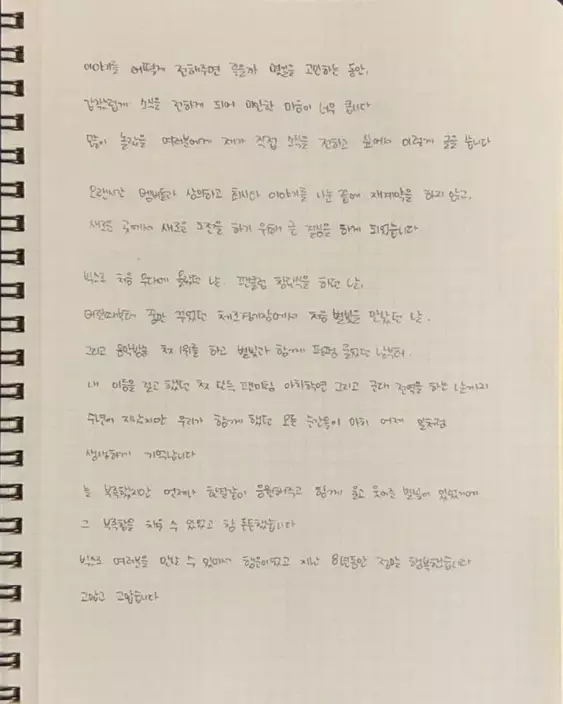 이야기를 어떻게 전해주면 좋을까 몇날을 고민하는 동안,
갑작스럽게 소식을 전하게 되어 미안한 마음이 너무 큽니다
많이 놀랐을 여러분에게 제가 직접 소식을 전하고 싶어서 이렇게 글을 씁니다
오랜시간 멤버들과 상의하고 회사와 이야기를 나눈 끝에 재계약을 하지 않고,
새로운 곳에서 새로운 도전을 하기 위해 큰 결심을 하게 되었습니다
빅스로 처음 무대에 올랐던 날, 팬클럽 창단식을 하던 날,
어린시절에 꿈만 꾸었던 체조경기장에서 처음 별빛을 만났던 날,
그리고 음악방송 첫 1위를 하고 별빛과 함께 펑펑 울었던 날부터,
내 이름을 걸고 했었던 첫 단독 팬미팅 아회하면 그리고 군대 전역을 하는 날까지
수년이 지났지만 우리가 함께 했던 모든 순간들이 마치 어제 일처럼
생생하게 기억납니다
늘 부족했지만 언제나 한결같이 응원해주고 함께 울고 웃어준 별빛이 있었기에
그 부족함을 채울 수 있었고 참 든든했습니다
빅스로 여러분을 만날 수 있어서 행운이었고 지난 8년동안 정말 행복했습니다
고맙고 고맙습니다